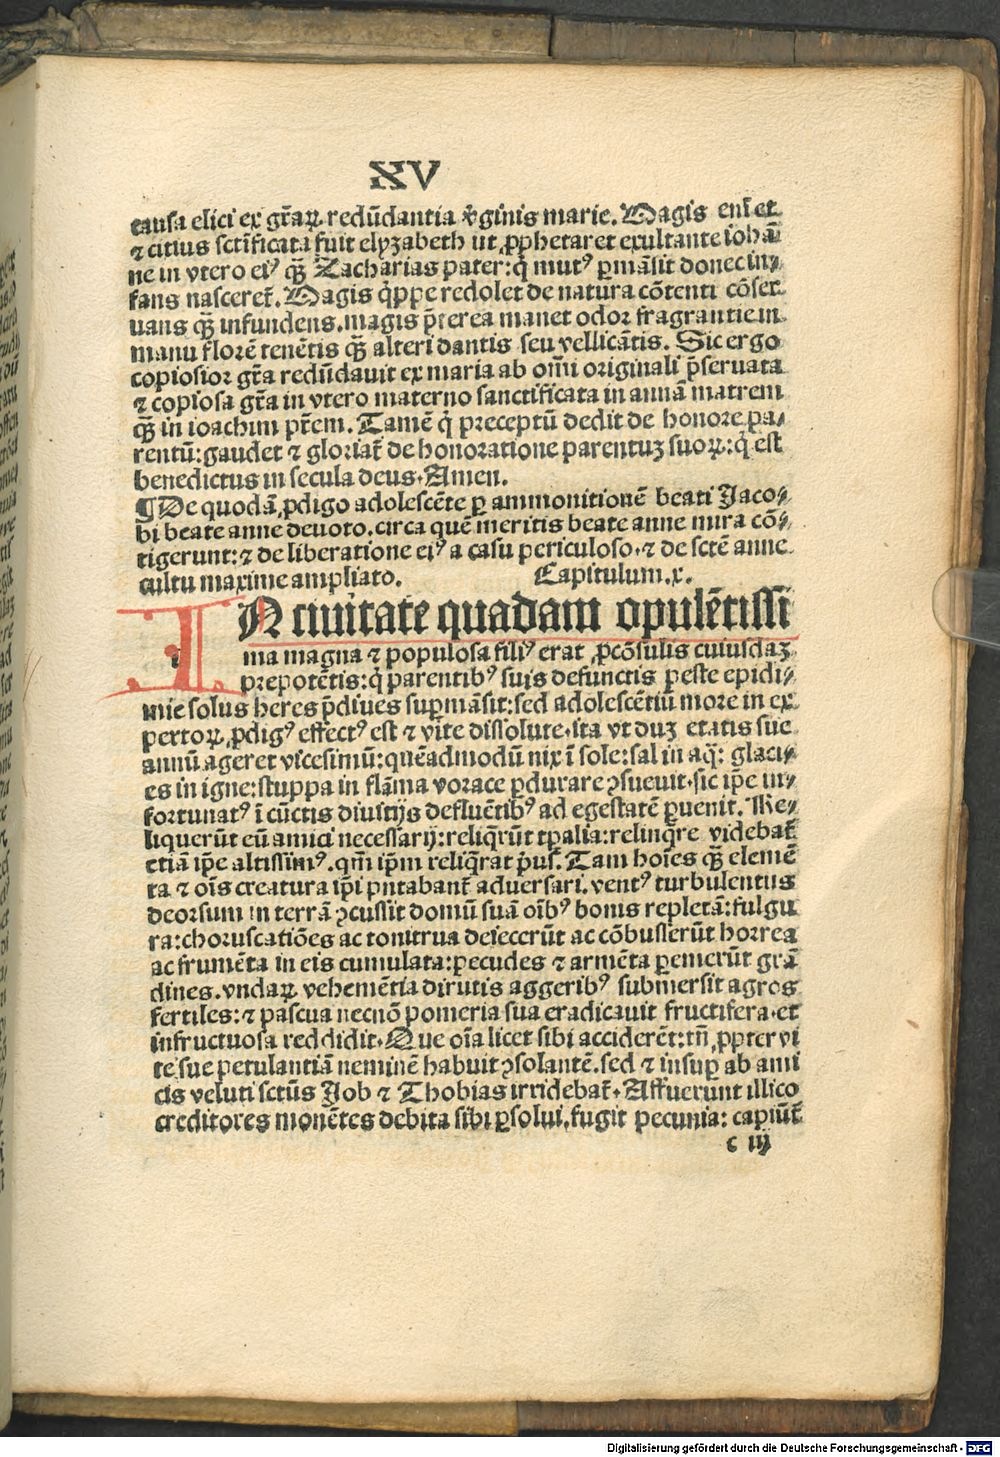 XV
causa elici ex gr̃aꝝ redũdantia v̓ginis marie. Magis eni̅ et
⁊ citius sct̃ificata fuit elyzabeth ut ꝓphetaret exultante iohã
ne in vtero eiꝰ qȝ̃ Zacharias pater: q̓ mutꝰ ꝑmãsit donec in⸗
fans nasceret̃. Magis q̓ppe redolet de natura cõtenti cõser
uans qȝ̃ infundens. magis p̃terea manet odor fragrantie in
manu florẽ tenẽtis qȝ̃ alteri dantis seu vellicãtis. Sic ergo
copiosior gr̃a redũdauit ex maria ab om̃i originali p̃seruata
⁊ copiosa gr̃a in vtero materno sanctificata in annã matrem
qȝ̃ in ioachim pr̃em. Tamẽ q̓ preceptũ dedit de honore pa⸗
rentũ: gaudet ⁊ gloriat̃ de honoratione parentuz suoꝝ: q̓ est
benedictus in secula deus. Amen.
¶ De quodã ꝓdigo adolescẽte ꝑ ammonitionẽ beati Jaco⸗
bi beate anne deuoto. circa quẽ meritis beate anne mira cõ⸗
tigerunt: ⁊ de liberatione eiꝰ a casu periculoso. ⁊ de sctẽ anne
cultu maxime ampliato. Capitulum. x.
IN ciuitate quadam opulẽtissi
ma magna ⁊ populosa filiꝰ erat ꝓcõsulis cuiusdaȝ
prepotẽtis: q̓ parentibꝰ suis defunctis peste epidi⸗
mie solus heres p̃diues suꝑmãsit: sed adolescẽtiũ more in ex
pertoꝝ ꝓdigꝰ effectꝰ est ⁊ vite dissolute. ita vt duȝ etatis sue
annũ ageret vicesimũ: quẽadmodũ nix ĩ sole: sal in aq̃: glaci⸗
es in igne: stuppa in flãma vorace ꝑdurare ꝯsueuit. sic ip̃e in⸗
fortunatꝰ ĩ cũctis diuitijs defluẽtibꝰ ad egestatẽ ꝑuenit. Re⸗
liquerũt eũ amici necessarij: reliq̃rũt tp̃alia: relinq̃re videbat̃
etiã ip̃e altissimꝰ. qm̃ ip̃m reliq̃rat p̓us. Tam hoĩes qȝ̃ elemẽ
ta ⁊ oĩs creatura ip̃i putabant̃ aduersari. ventꝰ turbulentus
deorsum in terrã ꝯcussit domũ suã oĩbꝰ bonis repletã: fulgu
ra: choruscatiões ac tonitrua deiecerũt ac cõbusserũt horrea
ac frumẽta in eis cumulata: pecudes ⁊ armẽta ꝑemerũt grã
dines. vndaꝝ vehemẽtia dirutis aggeribꝰ submersit agros
fertiles: ⁊ pascua necnõ pomeria sua eradicauit fructifera. et
infructuosa reddidit. Que oĩa licet sibi acciderẽt: tñ ꝓpter vi
te sue petulantiã neminẽ habuit ꝯsolantẽ. sed ⁊ insuꝑ ab ami
cis veluti sctũs Job ⁊ Thobias irridebat̃. Affuerunt illico
creditores monẽtes debita sibi ꝑsolui. fugit pecunia: capiũt̃
c iij
Digitalisierung gefördert durch die Deutsche Forschungsgemeinschaft - DFG